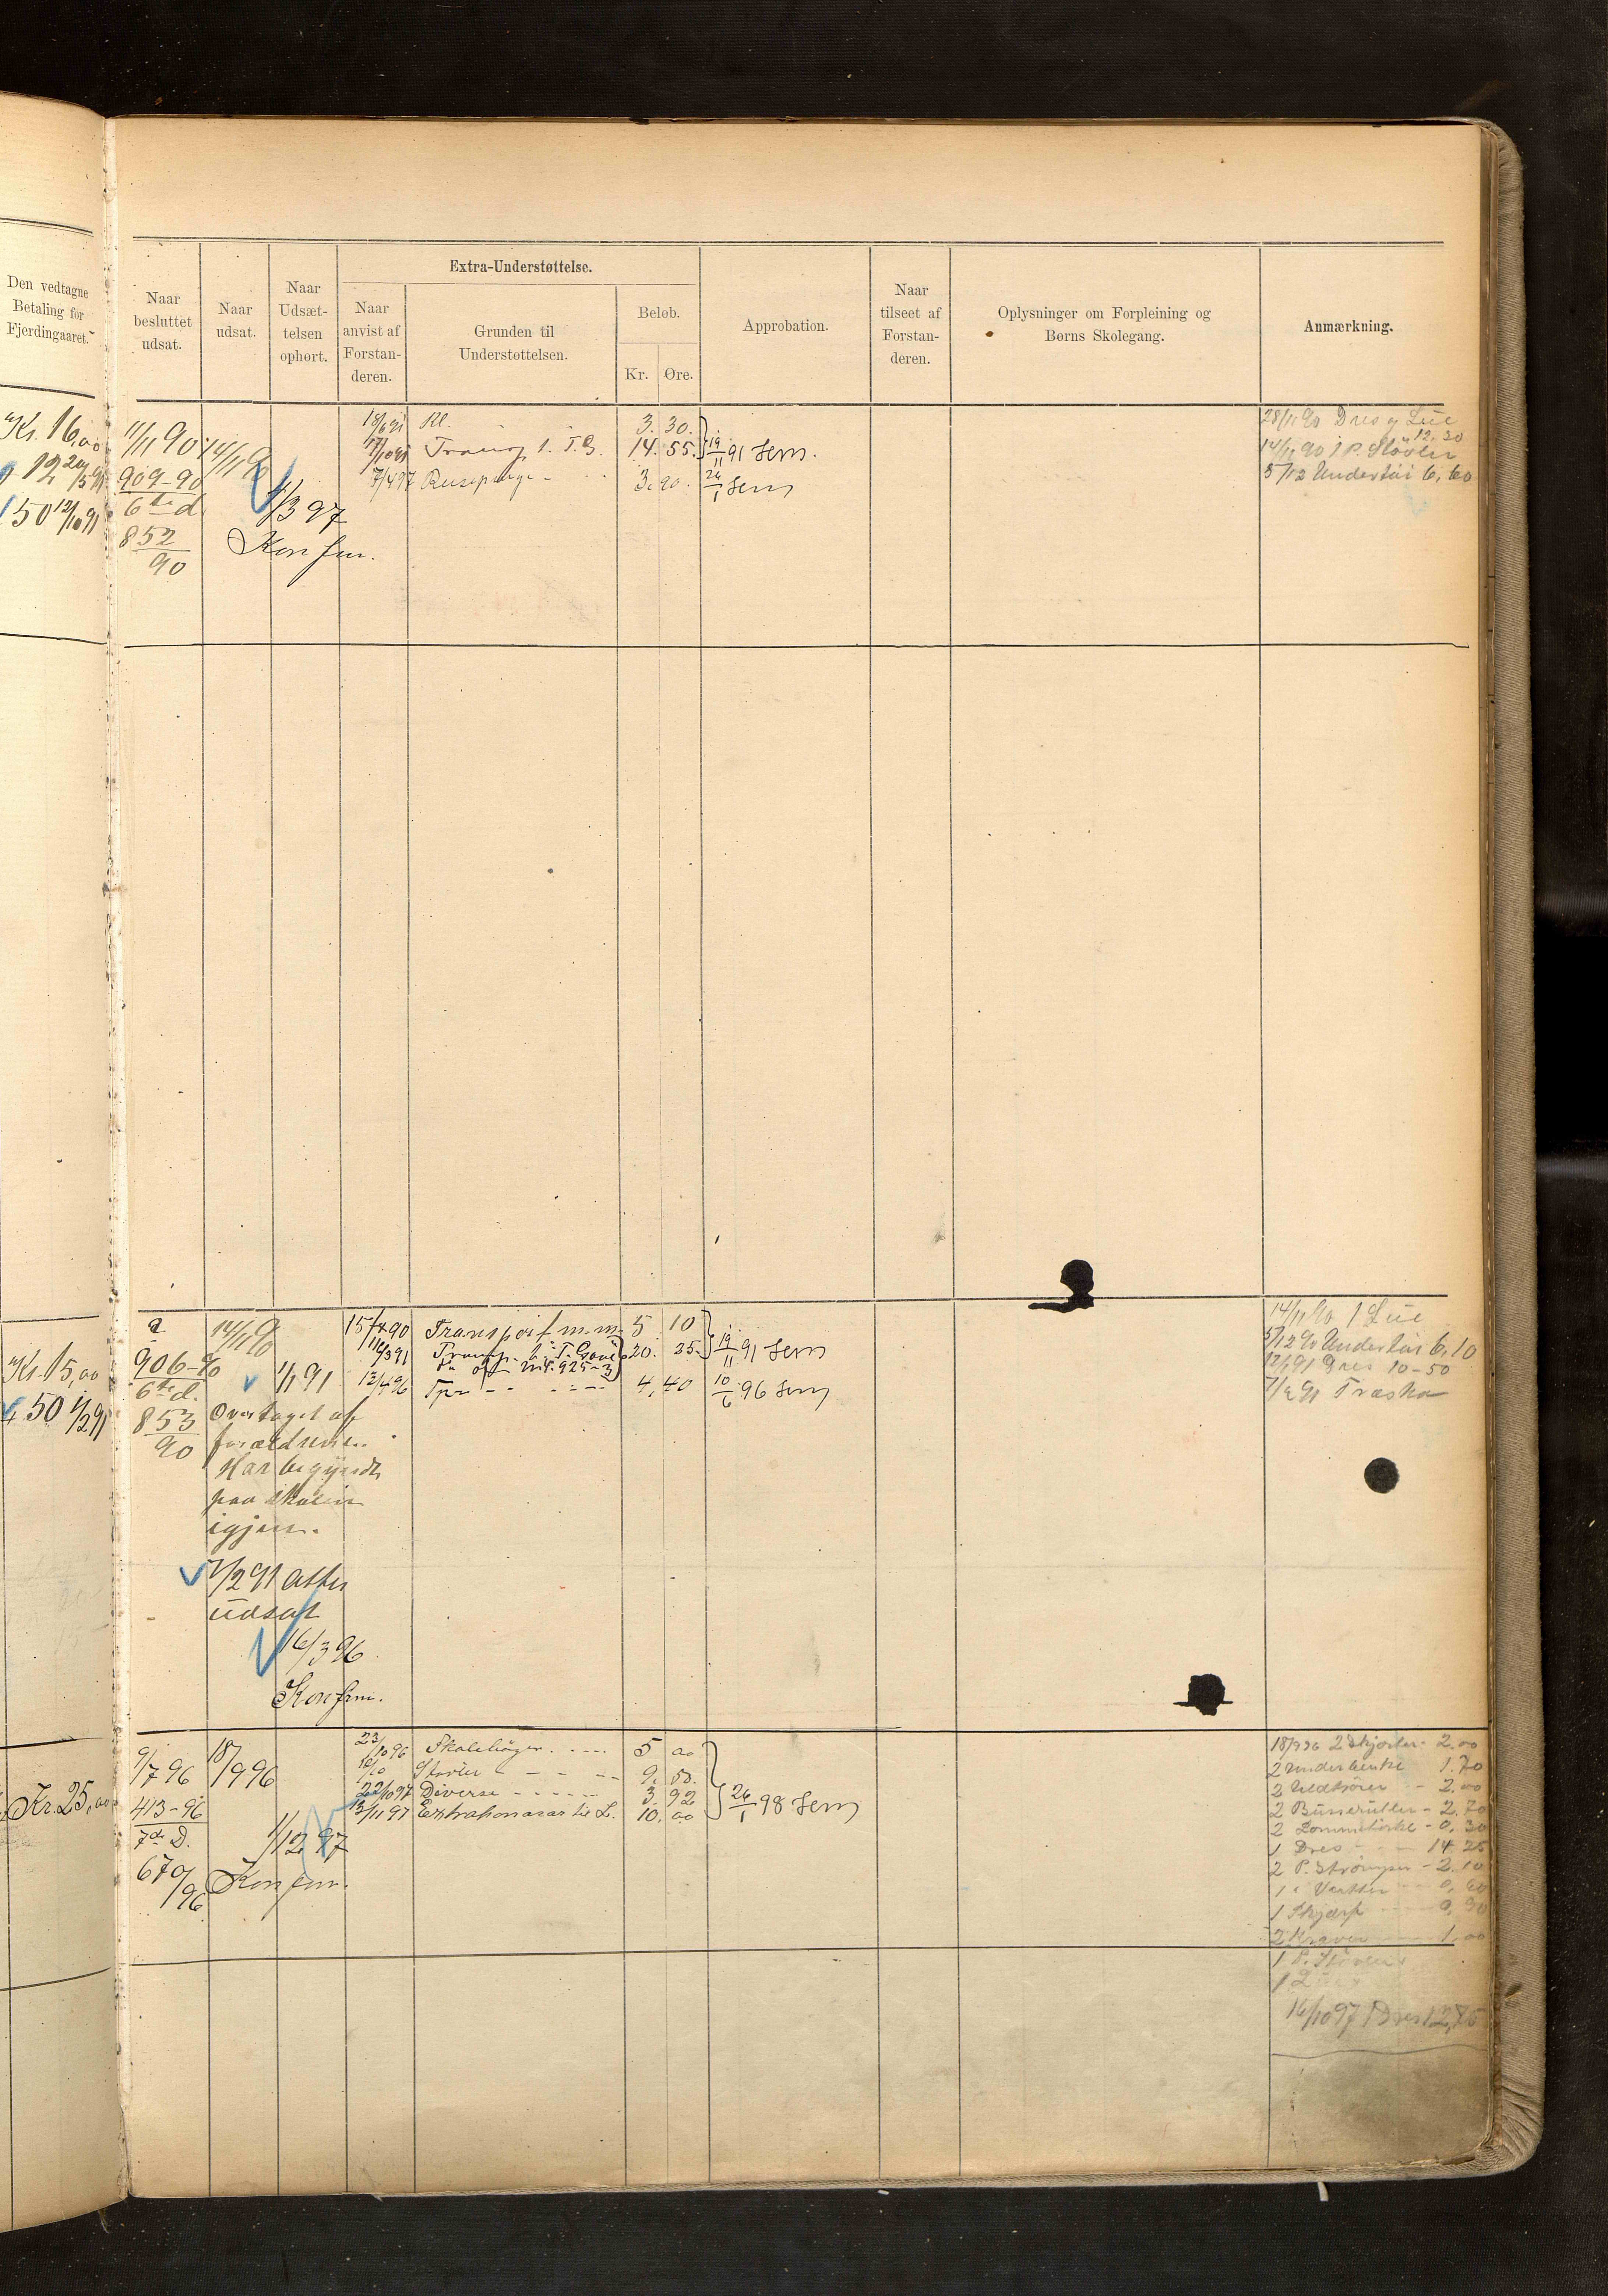 Den vedtagne
Betaling for
Fjerdingaaret.
Naar
besluttet
udsat.
Naar
udsat.
Naar
Udsæt-
telsen
ophørt.
Extra-Understøttelse.
Naar
anvist af
Forstan-
deren.
Grunden til
Understøttelsen.
Beløb.
Kr. Øre.
Approbation.
Naar
tilseet af
Forstan-
deren.
Oplysninger om Forpleining og
Børns Skolegang.
Anmærkning.
Kr. 16,00
50 12/10 91
11/11 90
909-90
6te d
852
90
14/11 90
1/3 97
Konfm.
18/6 91 Kl. 3. 30.
14. 55.
7/4 97 3.90.
19/11 91 Sem.
26/1 Sem
28/11 90 Dres og Lue
12,20
14/11 90 1 P. Støvler
5/12 Undertøi 6,60
Kr. 15,00
50 1/2 91
906-90
6te d.
853
90
14/11 90
1/1 91
Overtaget af
forældrene.
Har begyndt
paa skolen
igjen.
1/2 91 atter
udsat
16/3 96
Konfm.
Transport m.m. 5 10
20. 35.
4,40
19/11 91 Sem
10/6 96 Sem
14/11 90 1 Lue
5/12 90 Undertøi 6,10
Dres 10-50
Træsko
Kr. 25,00
9/7 96
413-96
7de D.
679/96
18/9 96
1/12 97
Konfm.
23/10 96 Skolebøger. 5 00
Støvler 9. 50.
22/10 97 Diverse 3. 92
13/11 97 Extrahonorar til L. 10. 00
26/1 98 Sem
18/9 96 2 Skjorter 2.00
2 Underbenkl 1.70
2 Uldtrøier 2.00
2 Busseruller - 2.70
2 Lommetørkl - 0,30
1 Dres 14 25
2 P. Strømper - 2.10
1 " Vanter 0,60
1 Skjærf 0,90
2 Kraver 1,00
1 P. Støvler
16/10 97 Dres 12,75